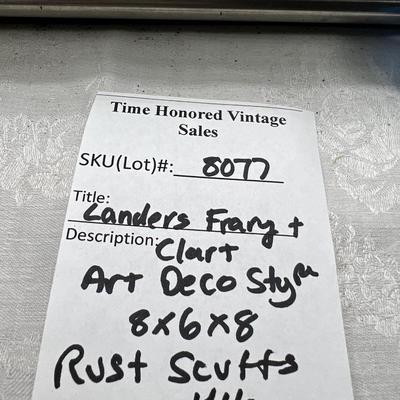 Time Honored Vintage
Sales
SKU(Lot)#: 8077
Title:
Landers Frary +
Description: Clart
Art Deco Style
8x6x8
Rust Scuffs